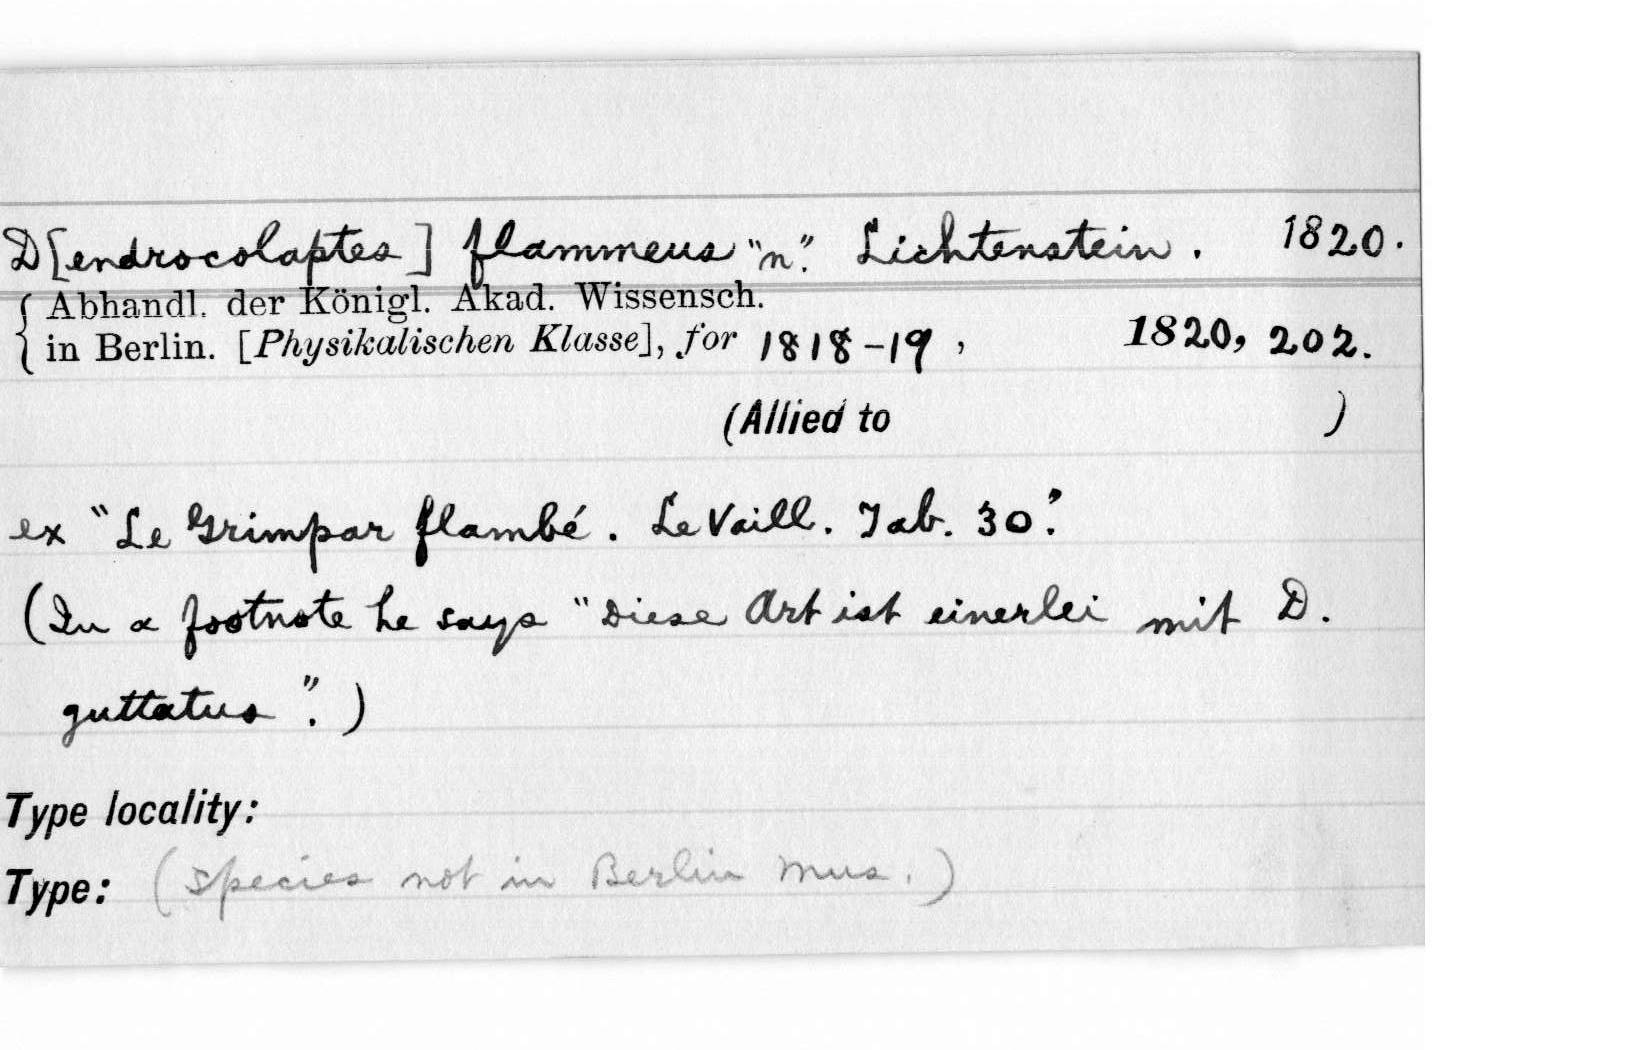 D[endrocolaptes] flammeus "n". Lichtenstein. 1820.
Abhandl. der Königl. Akad. Wissensch.
in Berlin. [Physikalischen Klasse], for 1818-19, 1820, 202.
(Allied to )
ex "Le Grimpar flambé. Le Vaill. Tab. 30".
(In a footnote he says "Diese Art ist einerlei mit D.
guttatus".)
Type locality:
Type: (Species not in Berlin Mus.)